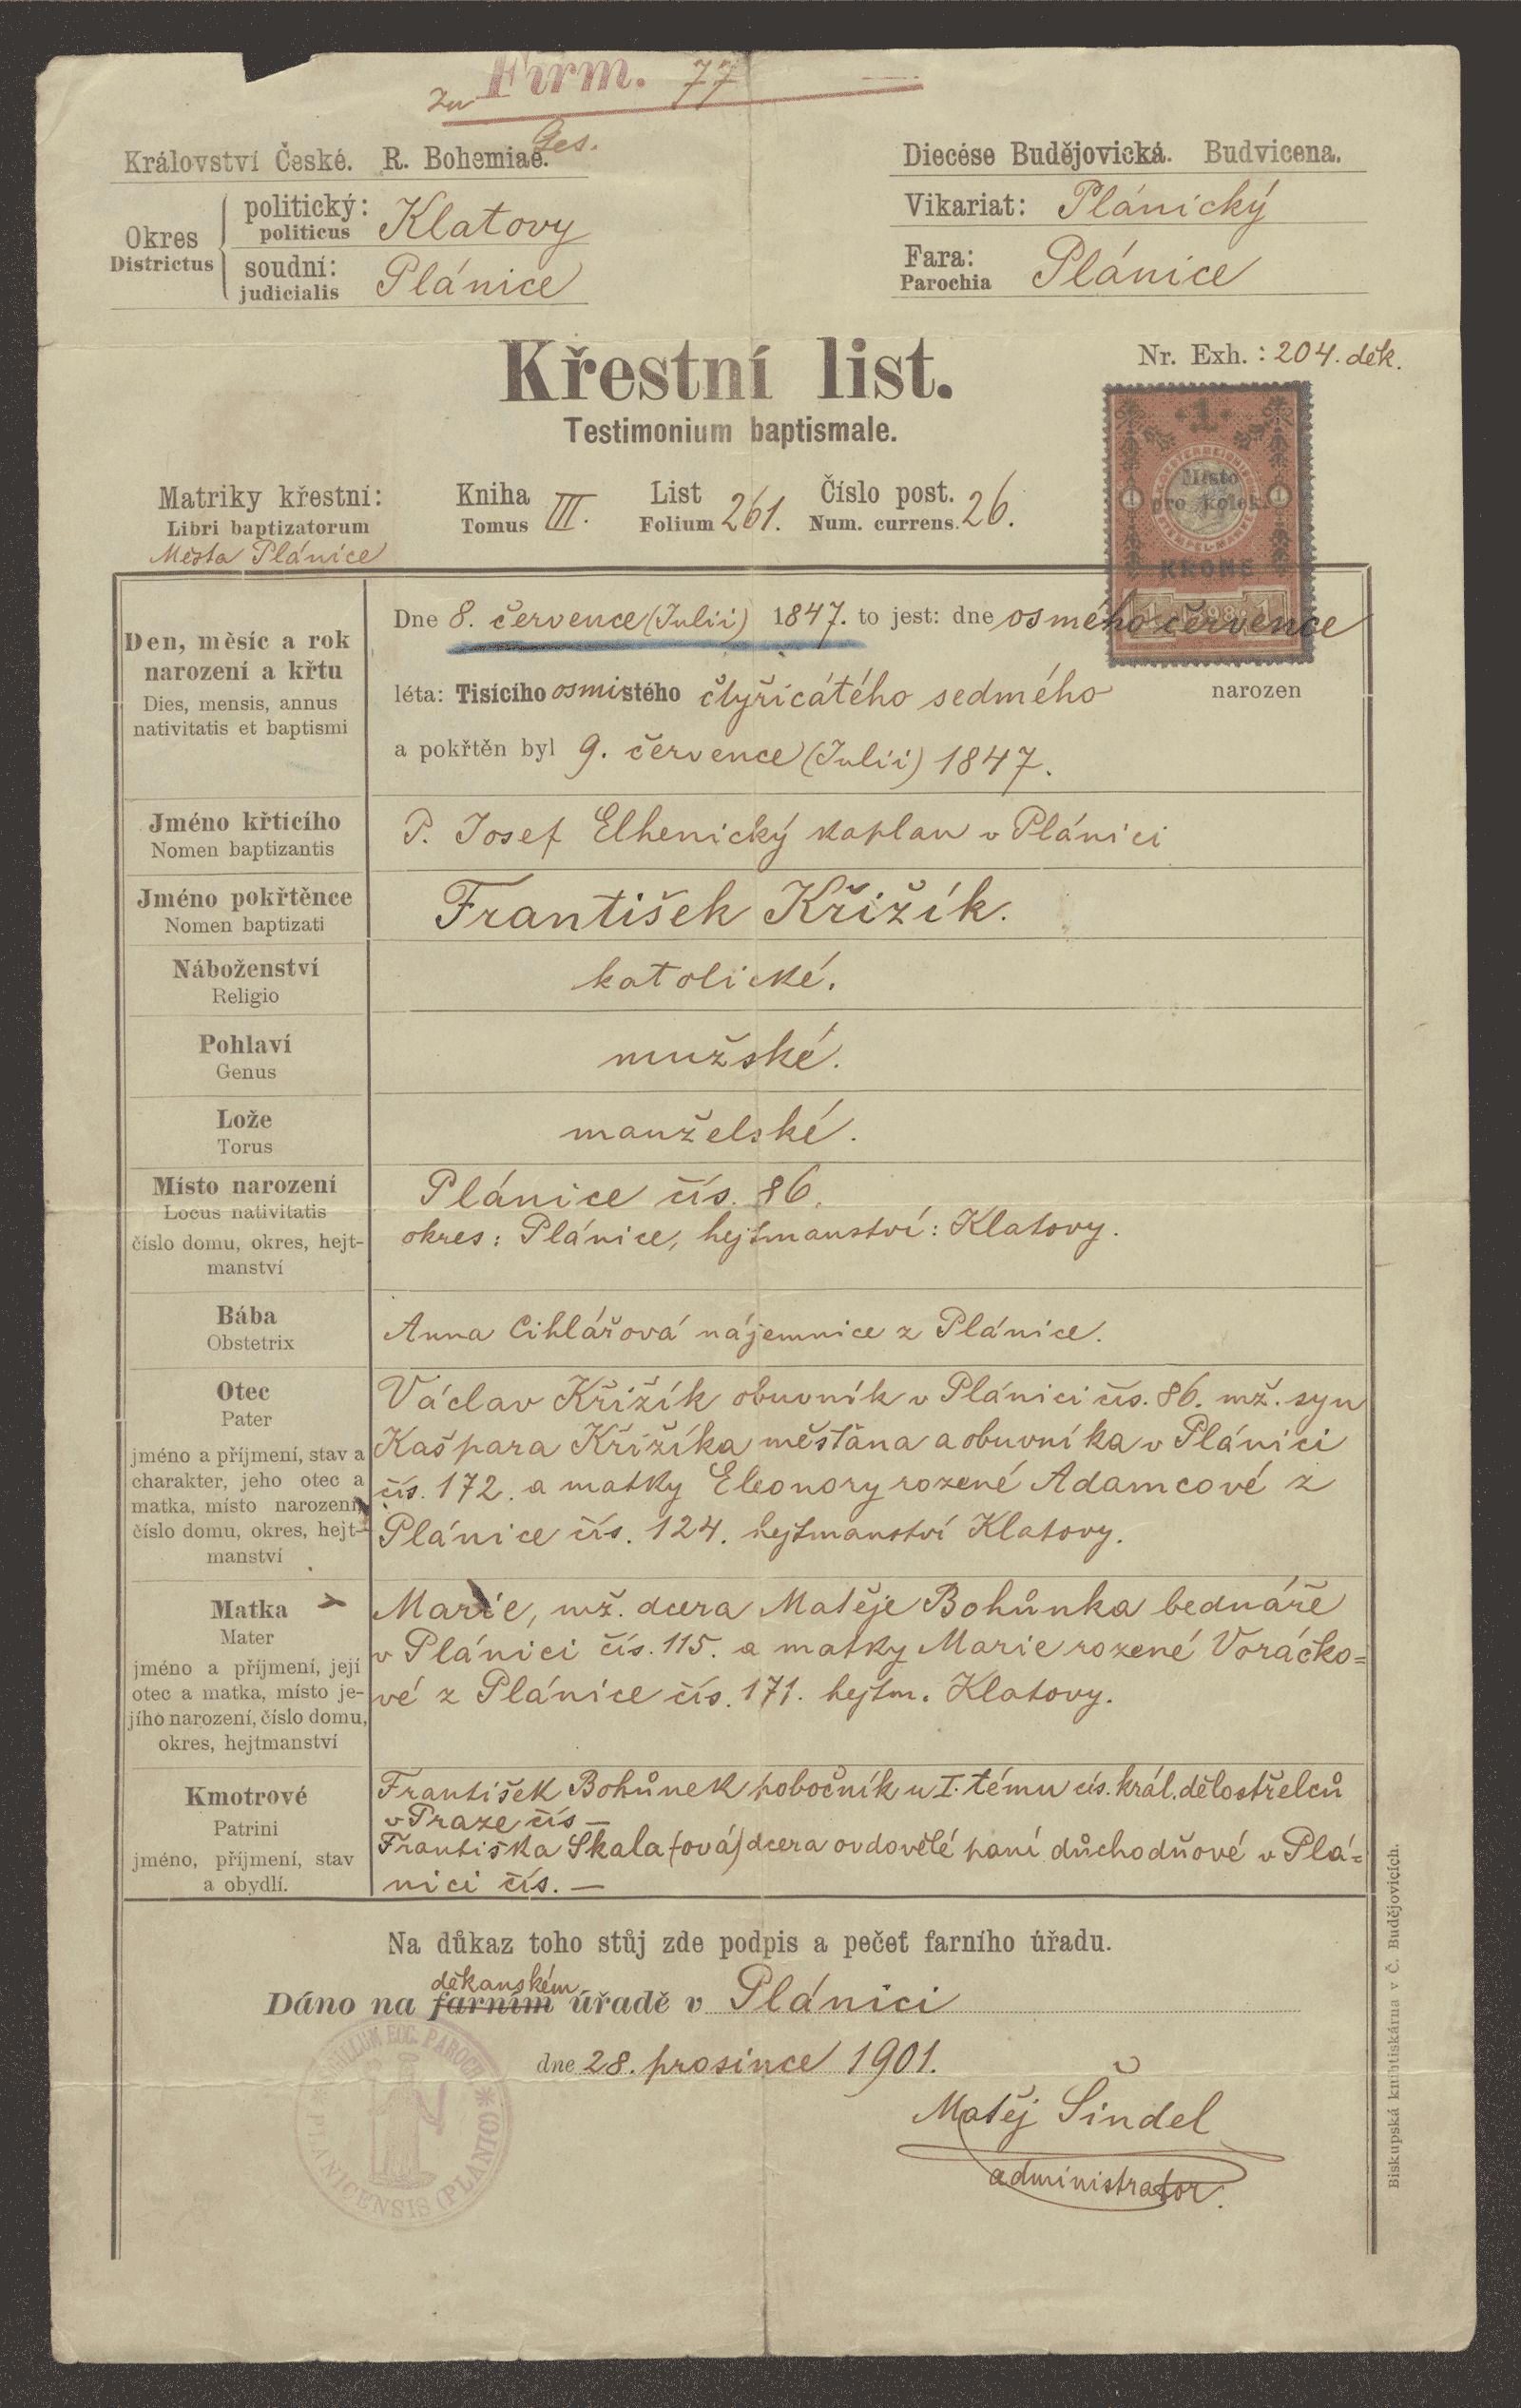 Zu Firm. 77
Ges.
Království České. R. Bohemiae.
Diecése Budějovická. Budvicena.
Okres
Districtus
politický: Klatovy
politicus
soudní: Plánice
judicialis
Vikariat: Plánický
Fara: Plánice
Parochia
Křestní list.
Testimonium baptismale.
Nr. Exh.: 204. děk.
1
Místo
pro kolek.
STEMPEL-MARKE
KRONE
1 1898 1
Matriky křestní:
Libri baptizatorum
Města Plánice
Kniha III.
Tomus
List 261.
Folium
Číslo post. 26.
Num. currens.
Den, měsíc a rok
narození a křtu
Dies, mensis, annus
nativitatis et baptismi
Dne 8. července (Julii) 1847. to jest: dne osmého července
léta: Tisícího osmistého čtyřicátého sedmého narozen
a pokřtěn byl 9. července (Julii) 1847.
Jméno křtícího
Nomen baptizantis
P. Josef Elhenický kaplan v Plánici
Jméno pokřtěnce
Nomen baptizati
František Křižík.
Náboženství
Religio
katolické.
Pohlaví
Genus
mužské.
Lože
Torus
manželské.
Místo narození
Locus nativitatis
číslo domu, okres, hejt-
manství
Plánice čís. 86.
okres: Plánice, hejtmanství: Klatovy.
Bába
Obstetrix
Anna Cihlářová nájemnice z Plánice.
Otec
Pater
jméno a příjmení, stav a
charakter, jeho otec a
matka, místo narození,
číslo domu, okres, hejt-
manství
Václav Křižík obuvník v Plánici čís. 86. mž. syn
Kašpara Křižíka měšťana a obuvníka v Plánici
čís. 172. a matky Eleonory rozené Adamcové z
Plánice čís. 124. hejtmanství Klatovy.
Matka
Mater
jméno a příjmení, její
otec a matka, místo je-
jího narození, číslo domu,
okres, hejtmanství
Marie, mž. dcera Matěje Bohůnka bednáře
v Plánici čís. 115. a matky Marie rozené Voráčko=
vé z Plánice čís. 171. hejtm. Klatovy.
Kmotrové
Patrini
jméno, příjmení, stav
a obydlí.
František Bohůnek pobočník u I. tému cís. král. dělostřelců
v Praze čís —
Františka Skala (ová) dcera ovdovělé paní důchodňové v Plá=
nici čís. —
Na důkaz toho stůj zde podpis a pečeť farního úřadu.
děkanském
Dáno na farním úřadě v Plánici
dne 28. prosince 1901.
Matěj Šindel
administrator.
SIGILLUM ECC. PAROCH. PLANICENSIS (PLANIC)
Biskupská knihtiskárna v Č. Budějovicích.